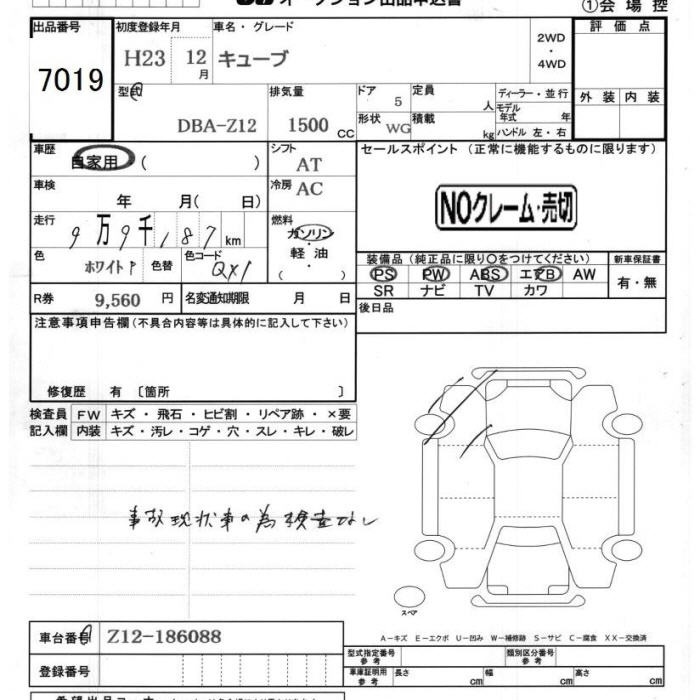 オークション出品申込書
①会場控
出品番号 初度登録年月 車名・グレード 評価点
7019 H23 12月 キューブ 2WD・4WD
型式 排気量 ドア 定員 ディーラー・並行 外装 内装
DBA-Z12 1500CC 5 人 モデル年式 年
形状 WG 積載 kg ハンドル 左・右
車歴 自家用 ( ) シフト AT セールスポイント (正常に機能するものに限ります)
車検 年 月( 日) 冷房 AC
NOクレーム・売切
走行 9万9千187km 燃料 ガソリン・軽油 ( )
色 ホワイトP 色替 色コード QX1
装備品 (純正品に限り○をつけてください) 新車保証書
PS PW ABS エアB AW 有・無
SR ナビ TV カワ
R券 9,560円 名変通知期限 月 日 後日品
注意事項申告欄 (不具合内容等は具体的に記入して下さい)
修復歴 有 〔箇所 〕
検査員記入欄 FW キズ・飛石・ヒビ割・リペア跡・×要
内装 キズ・汚レ・コゲ・穴・スレ・キレ・破レ
事故現状車の為検査なし
スペア
A-キズ E-エクボ U-凹み W-補修跡 S-サビ C-腐食 XX-交換済
車台番号 Z12-186088
型式指定番号 参考 類別区分番号 参考
登録番号 車庫証明用 参考 長さ cm 幅 cm 高さ cm